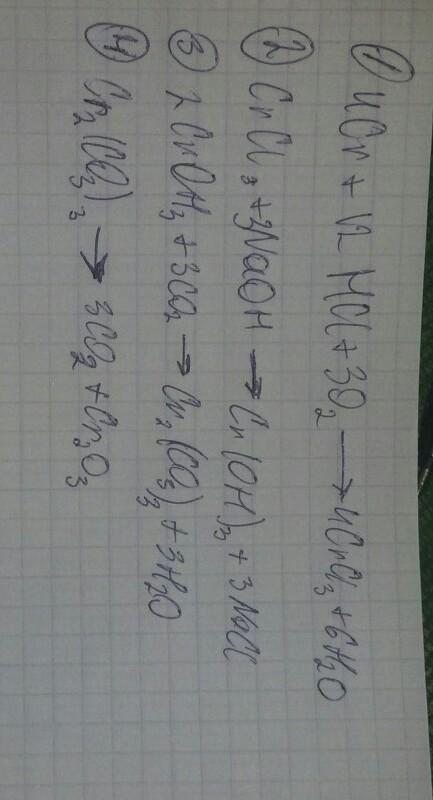 ① 4Cr + 12 HCl + 3O₂ → 4CrCl₃ + 6H₂O
② CrCl₃ + 3NaOH → Cr(OH)₃ + 3NaCl
③ 2CrOH₃ + 3CO₂ → Cr₂(CO₃)₃ + 3H₂O
④ Cr₂(CO₃)₃ → 3CO₂ + Cr₂O₃